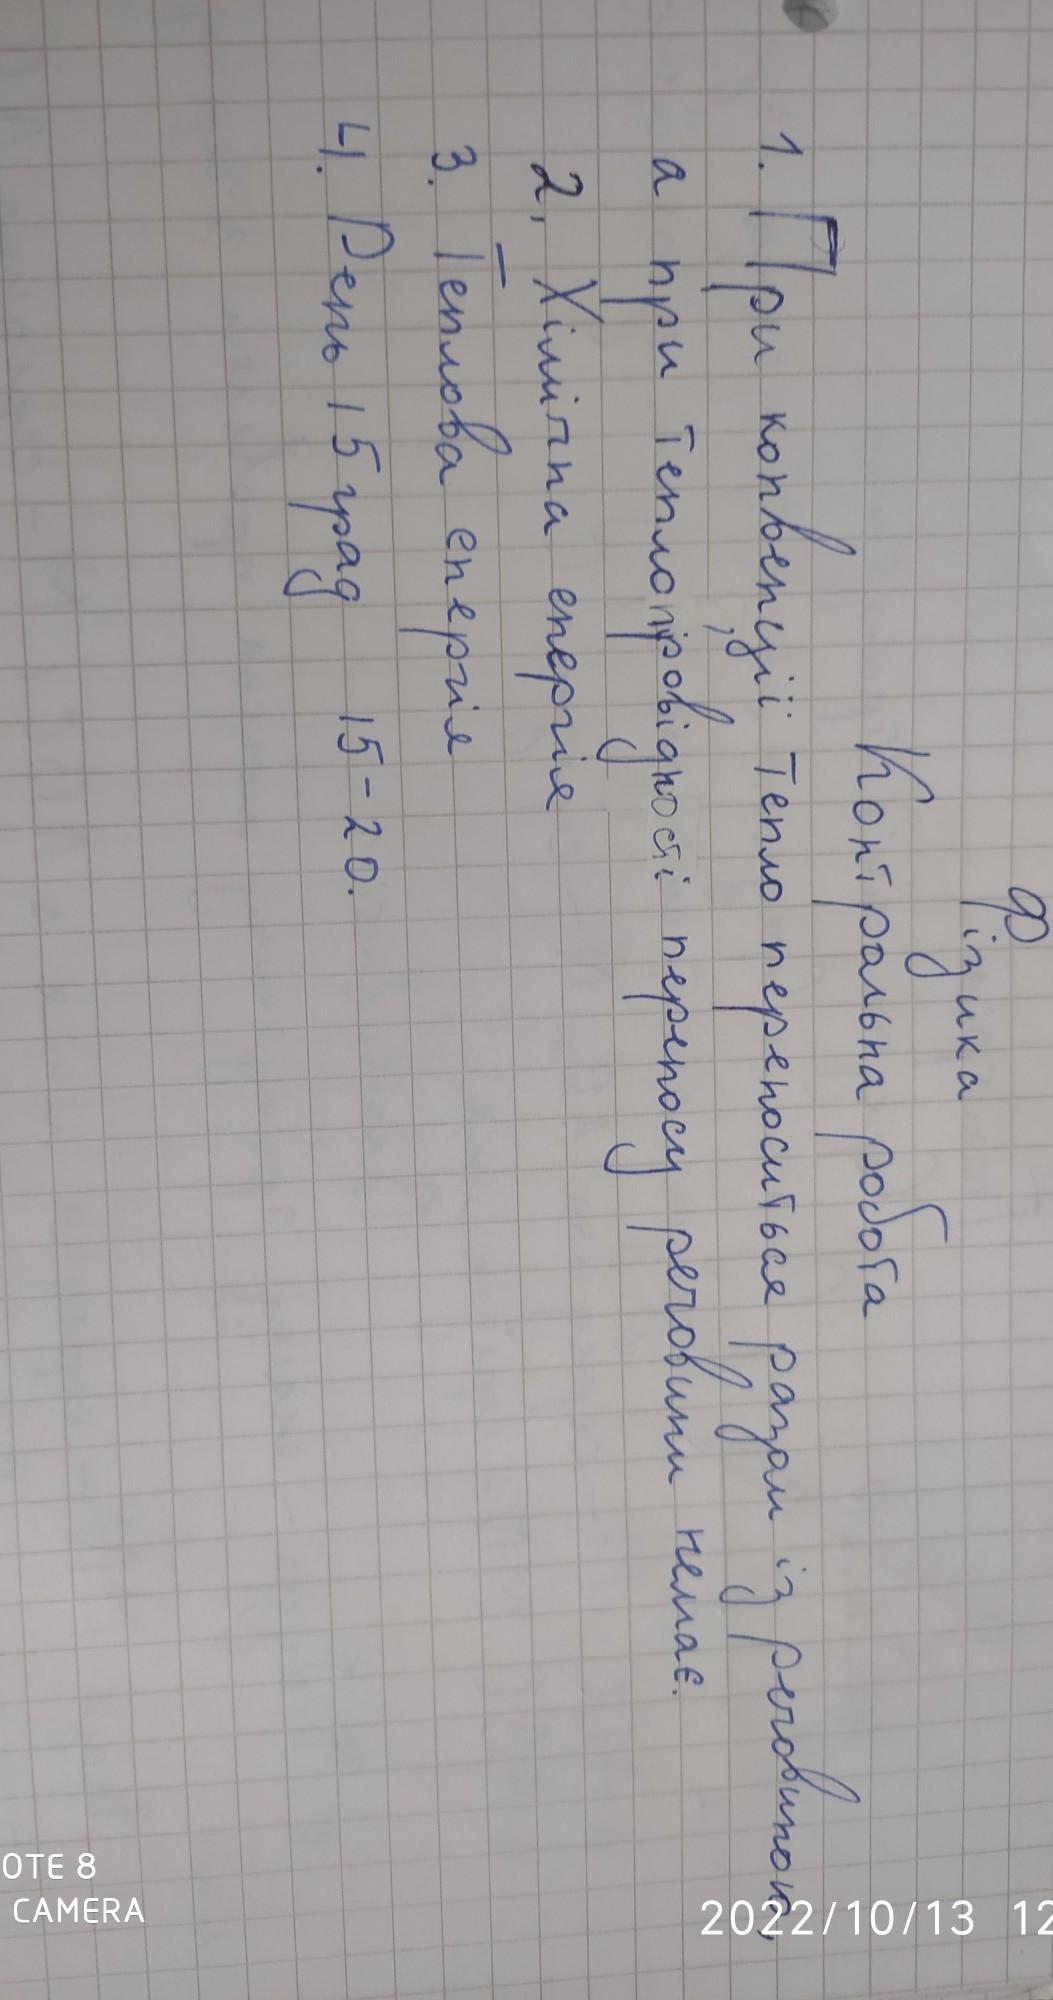 Фізика
Контральна робота
1. При конвенції тепло переноситься разом із речовиною,
а при теплопровідності переносу речовини немає.
2, Хімічна енергія
3. Теплова енергія
4. День 15 град 15-20.
OTE 8
CAMERA
2022/10/13 12